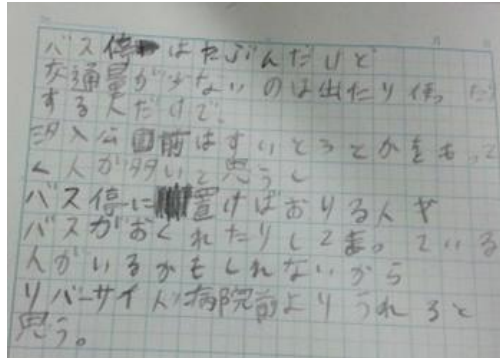 バス停はたぶんだいじ
交通量が少ないのは出たり
する人だけで。
公園前はすいとうとかをもって
く人が多いと思うし
バス停に置けばおりる人や
バスがおくれたりしてまっている
人がいるかもしれないから
リバーサイド病院前よりうれると
思う。